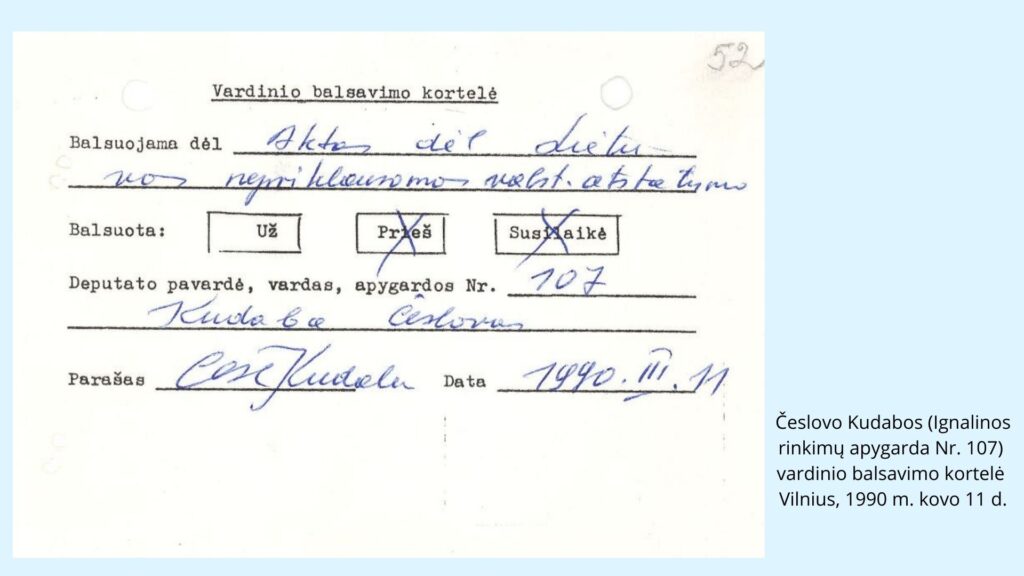 52
Vardinio balsavimo kortelė
Balsuojama dėl Aktas dėl Lietu-
vos nepriklausomos valst. atstatymo
Balsuota: Už Prieš Susilaikė
Deputato pavardė, vardas, apygardos Nr. 107
Kudaba Česlovas
Parašas Česl Kudaba Data 1990.III.11
Česlovo Kudabos (Ignalinos
rinkimų apygarda Nr. 107)
vardinio balsavimo kortelė
Vilnius, 1990 m. kovo 11 d.